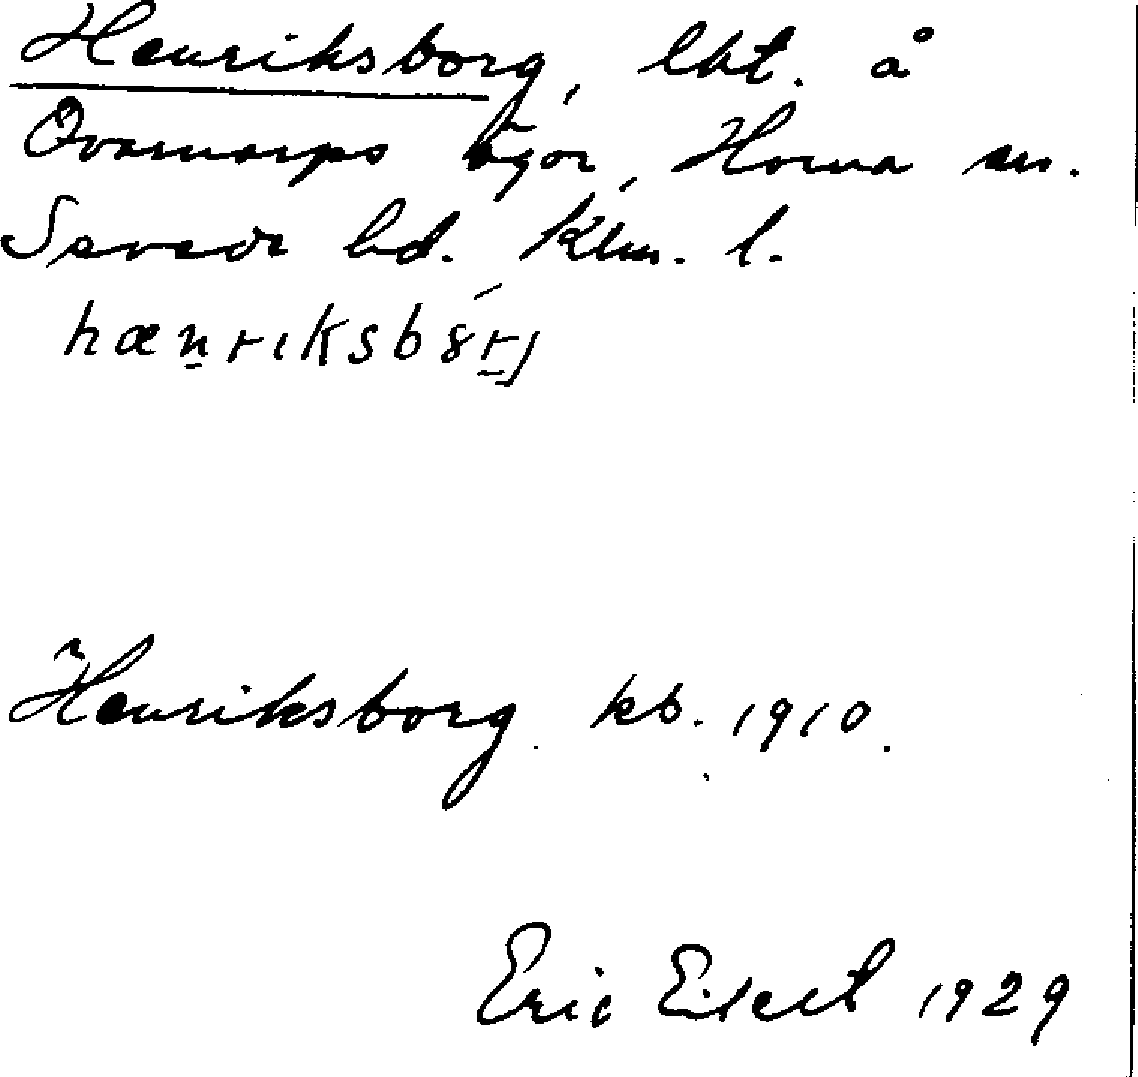 Henriksborg, lht. å
Ovarnarps ägor, Horna sn.
Sevede hd. Klm. l.
hænriksbȣrj
Henriksborg kb. 1910.
Eric Elsert 1929